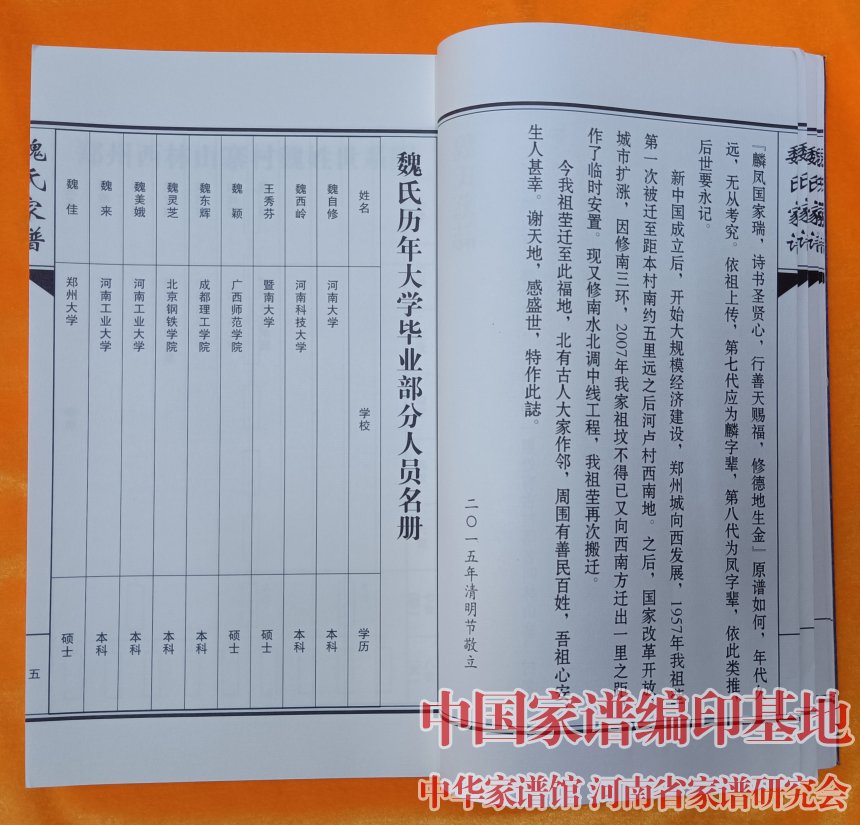 『麟凤国家瑞，诗书圣贤心，行善天赐福，修德地生金』原谱如何，年代
远，无从考究。依祖上传，第七代应为麟字辈，第八代为凤字辈，依此类推
后世要永记。
新中国成立后，开始大规模经济建设，郑州城向西发展，1957年我祖
第一次被迁至距本村南约五里远之后河卢村西南地。之后，国家改革开放
城市扩涨，因修南三环，2007年我家祖坟不得已又向西南方迁出一里之距
作了临时安置。现又修南水北调中线工程，我祖茔再次搬迁。
今我祖茔迁至此福地，北有古人大家作邻，周围有善民百姓，吾祖心安
生人甚幸。谢天地，感盛世，特作此誌。
二〇一五年清明节敬立
魏氏历年大学毕业部分人员名册
姓名 学校 学历
魏自修 河南大学 本科
魏西岭 河南科技大学 本科
王秀芬 暨南大学 硕士
魏颖 广西师范学院 硕士
魏东辉 成都理工学院 本科
魏灵芝 北京钢铁学院 本科
魏美娥 河南工业大学 本科
魏来 河南工业大学 本科
魏佳 郑州大学 硕士
魏氏家谱
五
中国家谱编印基地
中华家谱馆 河南省家谱研究会